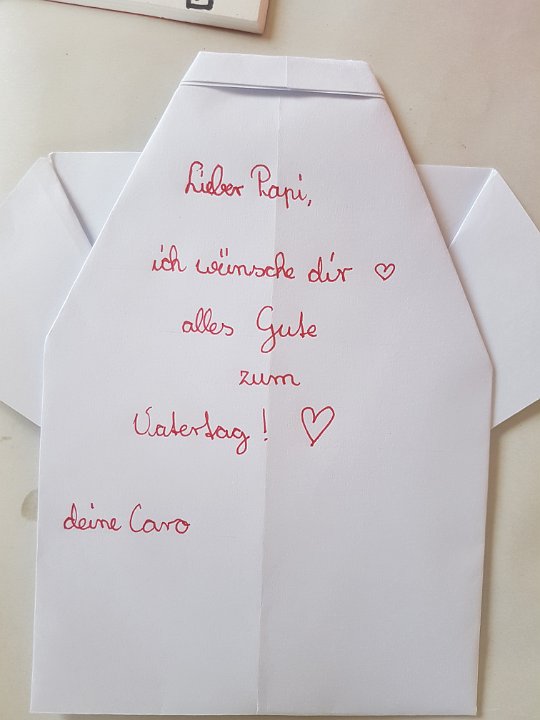 Lieber Papi,
ich wünsche dir ♡
alles Gute
zum
Vatertag! ♡
deine Caro